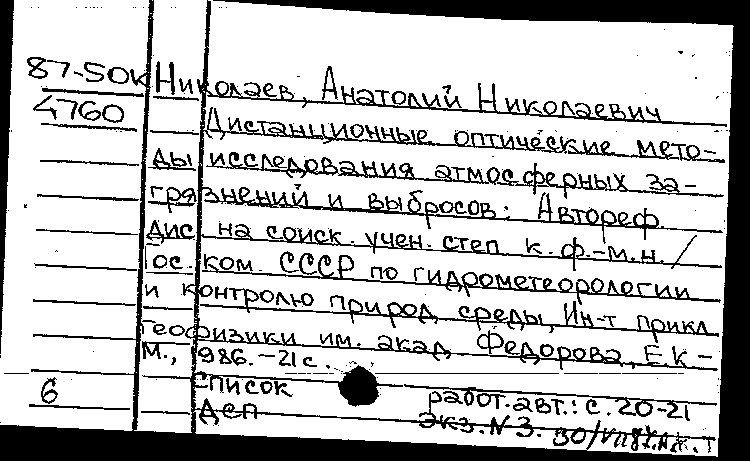 87-50к Николаев, Анатолий Николаевич
4760 Дистанционные оптические мето-
ды исследования атмосферных за-
грязнений и выбросов: Автореф.
дис. на соиск. учен. степ. к.ф.-м.н. /
Гос. ком. СССР по гидрометеорологии
и контролю природ. среды, Ин-т прикл.
геофизики им. акад. Федорова, Е.К -
М., 1986. - 21 с.
список работ. авт.: с. 20-21
6 деп экз. N 3.